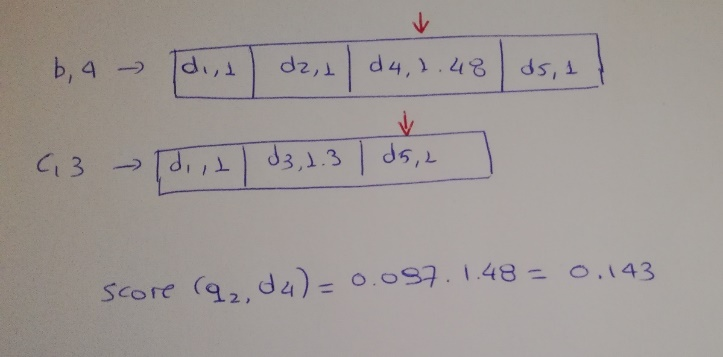 b,4 → d1,1 d2,1 d4,1.48 d5,1
c,3 → d1,1 d3,1.3 d5,1
score (q2, d4) = 0.097.1.48 = 0.143